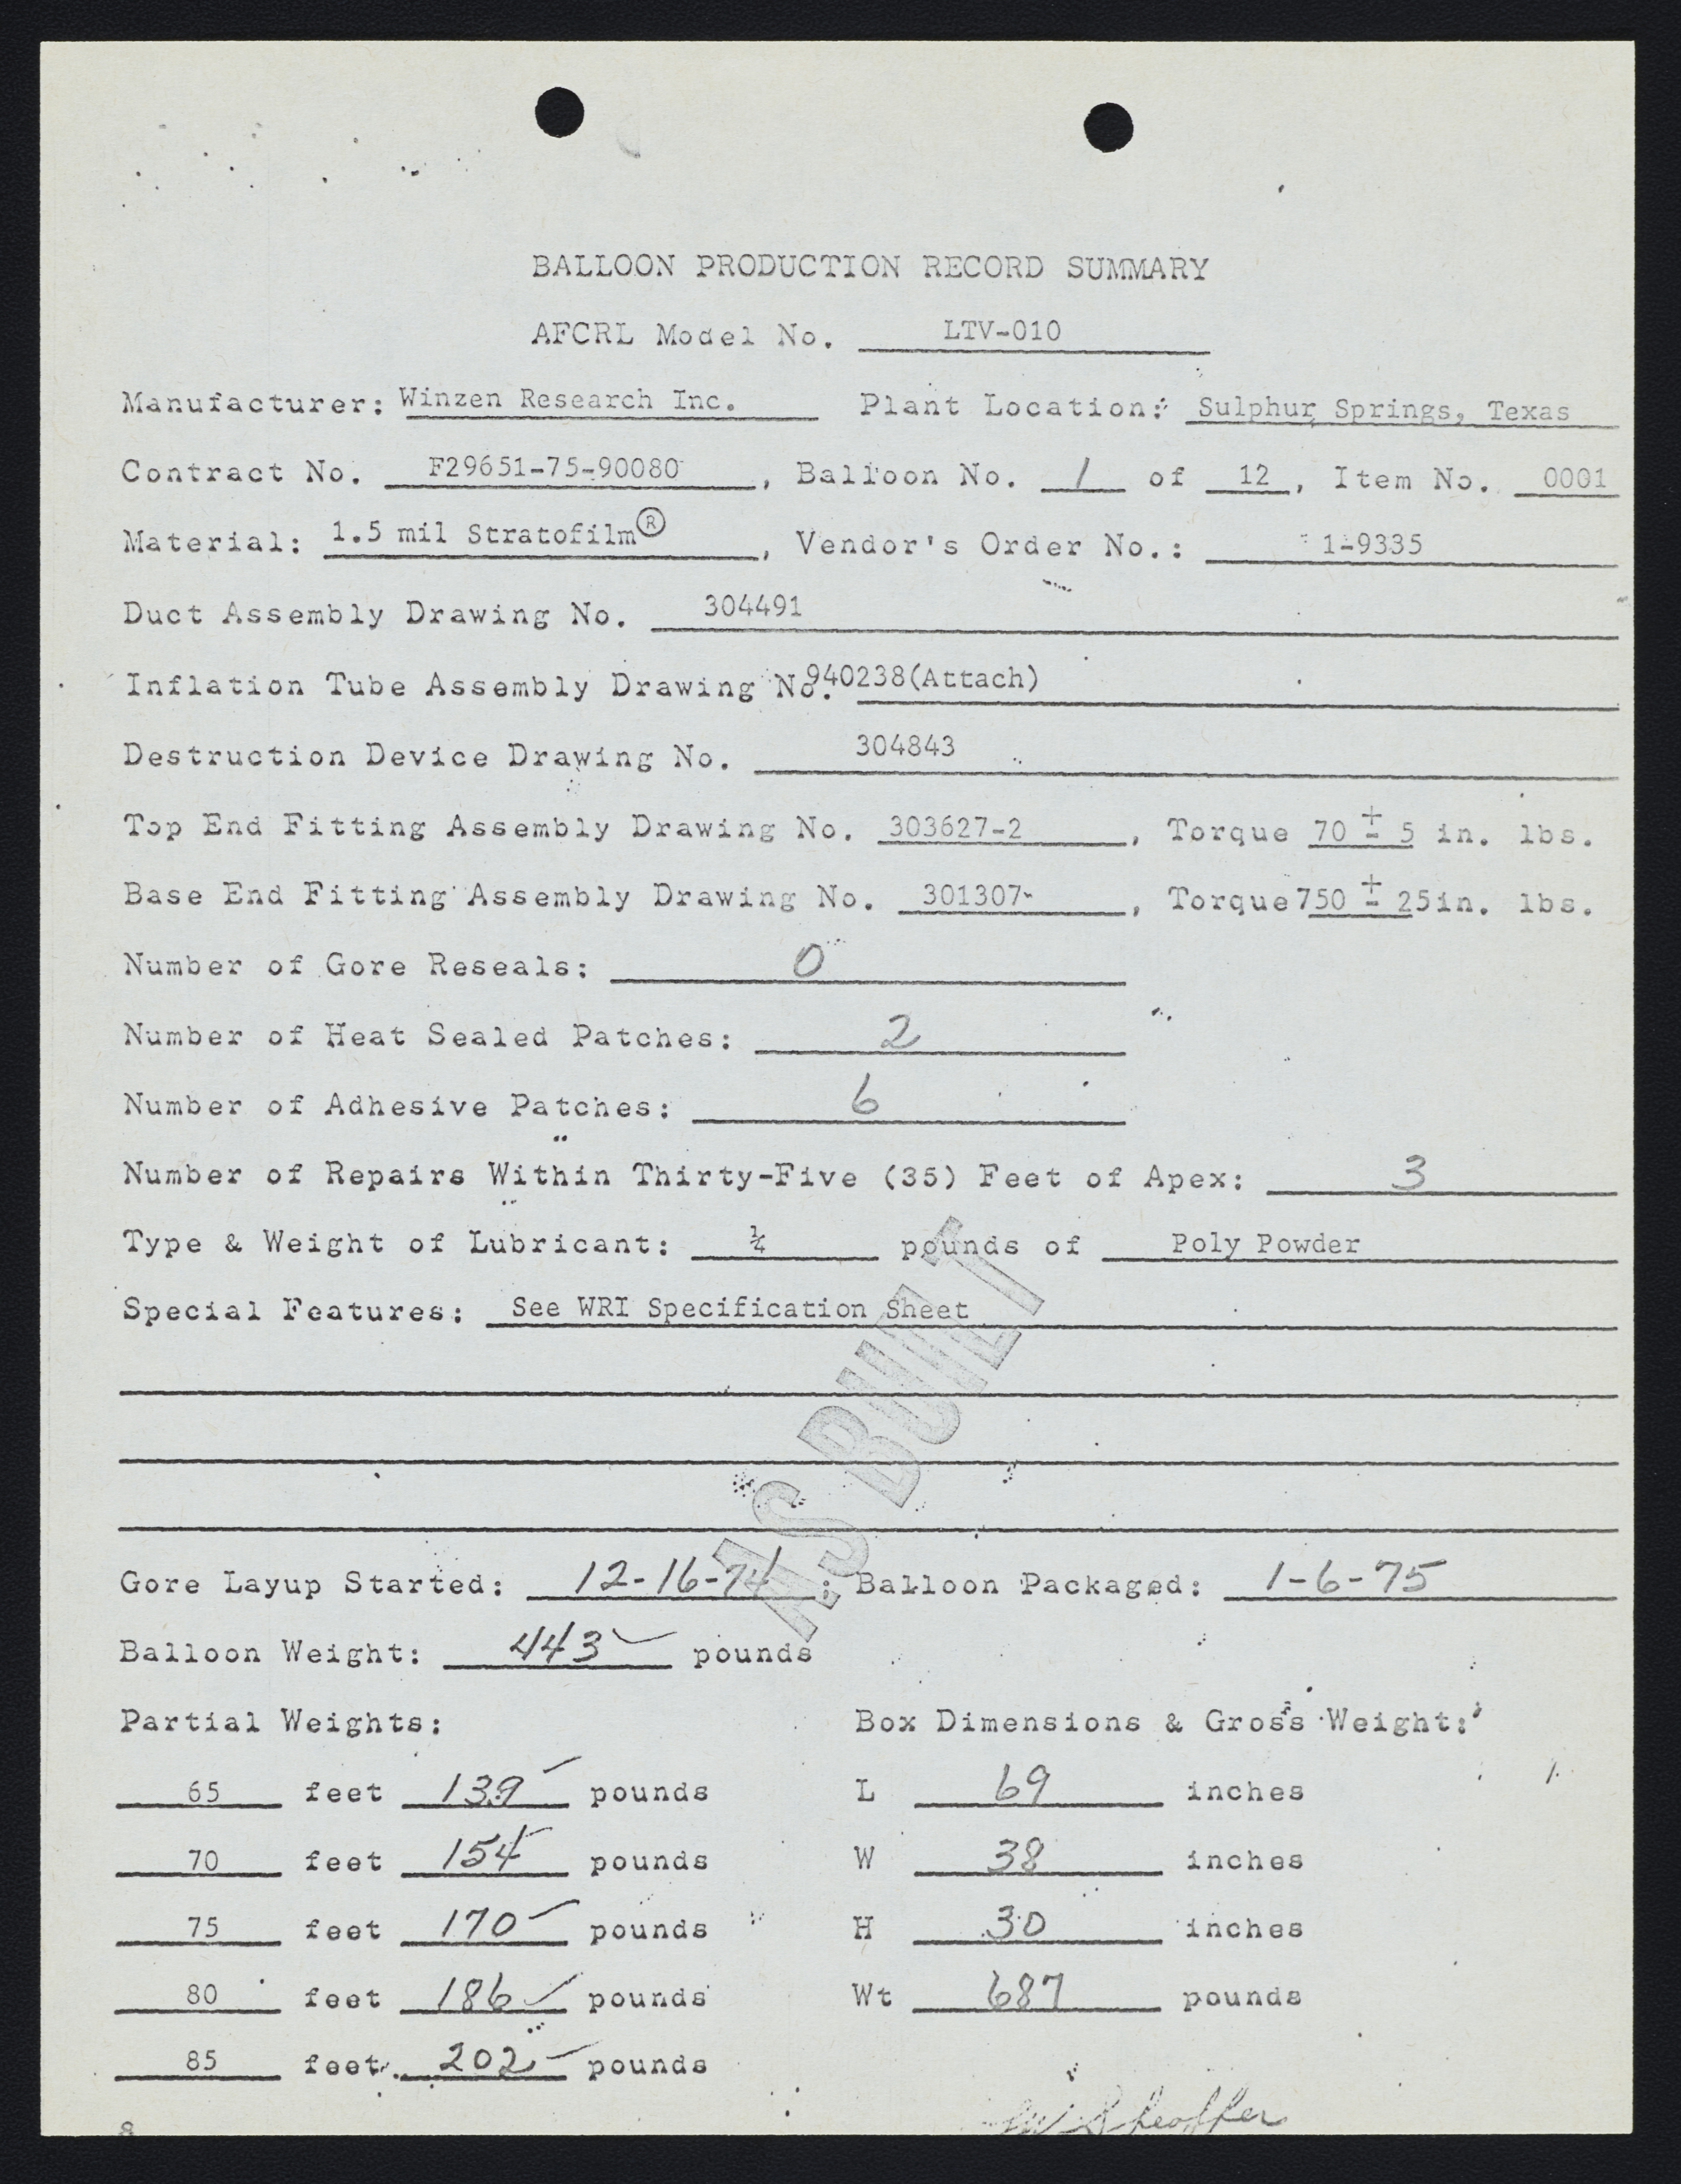 BALLOON PRODUCTION RECORD SUMMARY
AFCRL Model No. LTV-010
Manufacturer: Winzen Research Inc. Plant Location: Sulphur Springs, Texas
Contract No. F29651-75-90080, Balloon No. 1 of 12, Item No. 0001
Material: 1.5 mil Stratofilm®, Vendor's Order No.: 1-9335
Duct Assembly Drawing No. 304491
Inflation Tube Assembly Drawing No. 940238(Attach)
Destruction Device Drawing No. 304843
Top End Fitting Assembly Drawing No. 303627-2, Torque 70 ± 5 in. lbs.
Base End Fitting Assembly Drawing No. 301307-, Torque 750 ± 25 in. lbs.
Number of Gore Reseals: 0
Number of Heat Sealed Patches: 2
Number of Adhesive Patches: 6
Number of Repairs Within Thirty-Five (35) Feet of Apex: 3
Type & Weight of Lubricant: ¼ pounds of Poly Powder
Special Features: See WRI Specification Sheet
AS BUILT
Gore Layup Started: 12-16-74; Balloon Packaged: 1-6-75
Balloon Weight: 443 pounds
Partial Weights: Box Dimensions & Gross Weight:
65 feet 139 pounds L 69 inches
70 feet 154 pounds W 38 inches
75 feet 170 pounds H 30 inches
80 feet 186 pounds Wt 687 pounds
85 feet 202 pounds
8